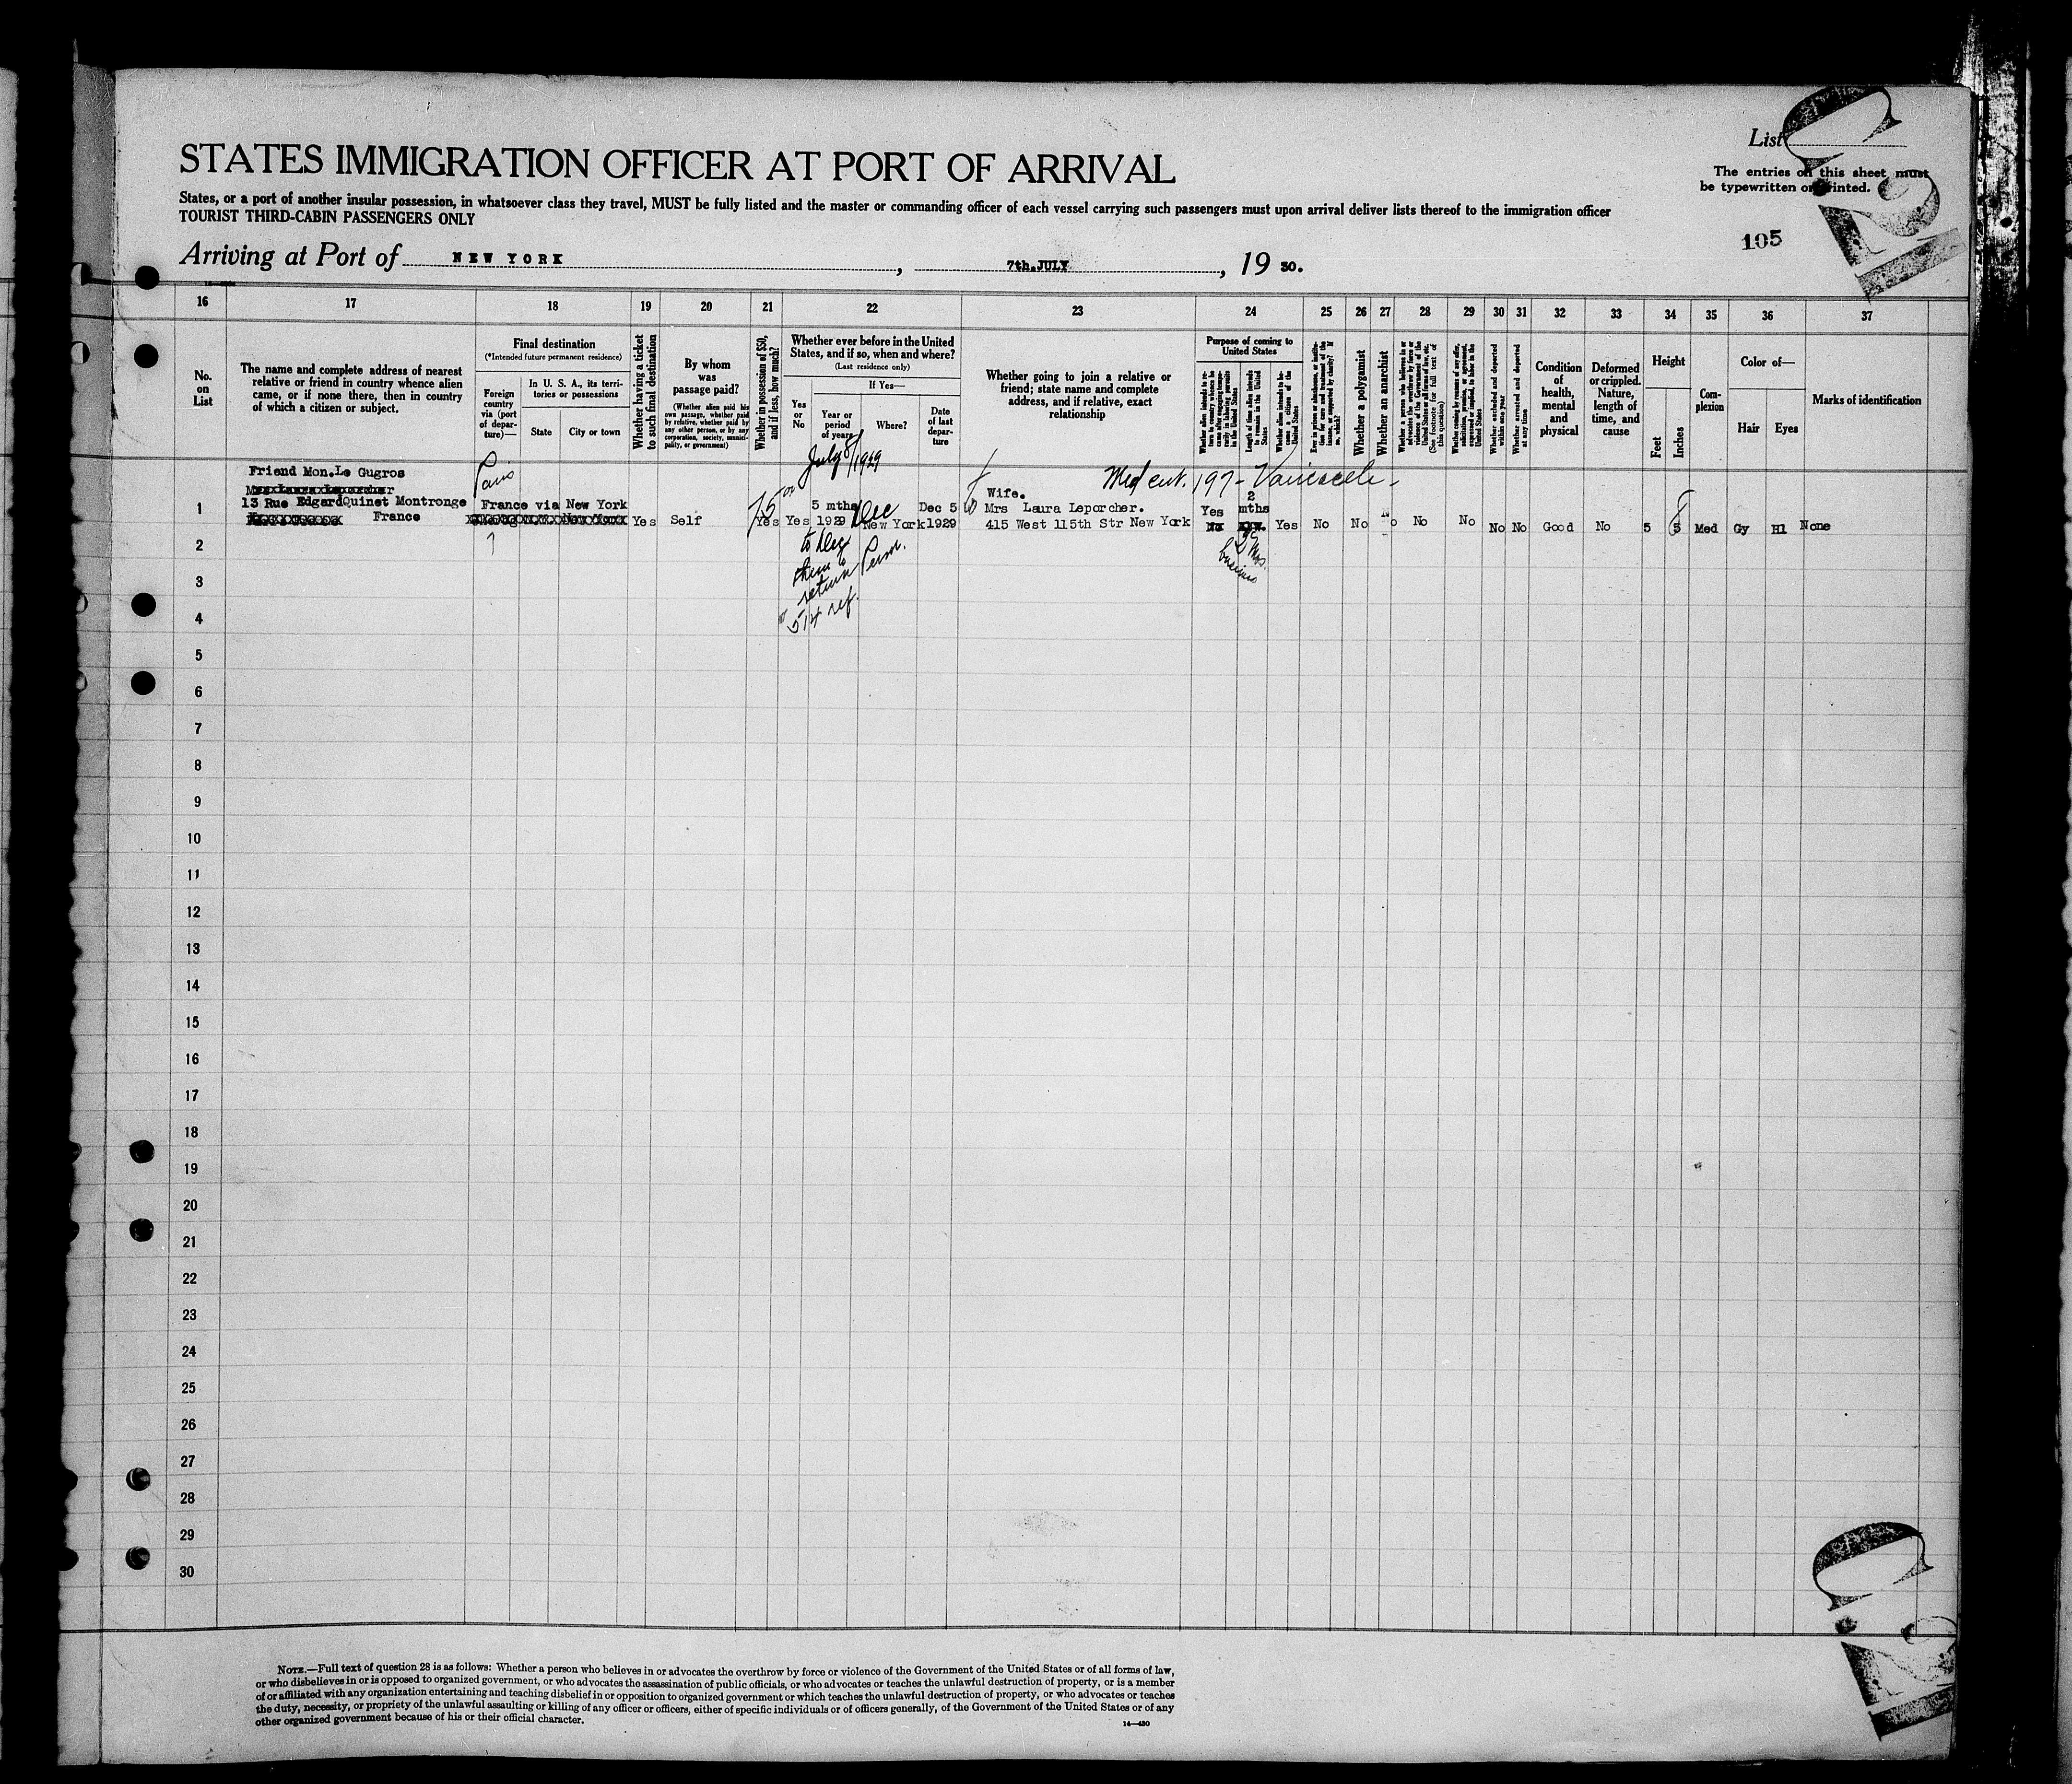 List
The entries on this sheet must
be typewritten or printed.
STATES IMMIGRATION OFFICER AT PORT OF ARRIVAL
States, or a port of another insular possession, in whatsoever class they travel, MUST be fully listed and the master or commanding officer of each vessel carrying such passengers must upon arrival deliver lists thereof to the immigration officer
TOURIST THIRD-CABIN PASSENGERS ONLY
105
Arriving at Port of NEW YORK, 7th.JULY, 19 30.
16 17 18 19 20 21 22 23 24 25 26 27 28 29 30 31 32 33 34 35 36 37
No.
on
List
The name and complete address of nearest
relative or friend in country whence alien
came, or if none there, then in country
of which a citizen or subject.
Final destination
(*Intended future permanent residence)
Foreign
country
via (port
of depar-
ture)—
In U. S. A., its terri-
tories or possessions
State
City or town
Whether having a ticket
to such final destination
By whom
was
passage paid?
(Whether alien paid his
own passage, whether paid
by relative, whether paid by
any other person, or by any
corporation, society, munici-
pality, or government)
Whether in possession of $50,
and if less, how much?
Whether ever before in the United
States, and if so, when and where?
(Last residence only)
Yes
or
No
If Yes—
Year or
period
of years
Where?
Date
of last
depar-
ture
Whether going to join a relative or
friend; state name and complete
address, and if relative, exact
relationship
Purpose of coming to
United States
Whether alien intends to re-
turn to country whence he
came after engaging tempo-
rarily in laboring pursuits
in the United States
Length of time alien intends
to remain in the United
States
Whether alien intends to be-
come a citizen of the
United States
Ever in prison or almshouse, or institu-
tion for care and treatment of the
insane, or supported by charity? If
so, which?
Whether a polygamist
Whether an anarchist
Whether a person who believes in or
advocates the overthrow by force or
violence of the Government of the
United States or all forms of law, etc.
(See footnote for full text of
this question)
Whether coming by reason of any offer,
solicitation, promise, or agreement,
expressed or implied, to labor in the
United States
Whether excluded and deported
within one year
Whether arrested and deported
at any time
Condition
of
health,
mental
and
physical
Deformed
or crippled.
Nature,
length of
time, and
cause
Height
Feet
Inches
Com-
plexion
Color of—
Hair
Eyes
Marks of identification
July 8/1929
Friend Mon.Le Gugros
Paris
13 Rue EdgardQuinet Montronge
France
France via New York
1 Yes Self 75 Yes Yes 5 mths 1929 Dec New York Dec 5 1929
Wife.
Mrs Laura Leporcher.
415 West 115th Str New York
Yes 2 mths Yes No No No No No No No Good No 5 5 Med Gy Hl None
8
to Dec
then to
return
Mos.
business
2
3
4
5
6
7
8
9
10
11
12
13
14
15
16
17
18
19
20
21
22
23
24
25
26
27
28
29
30
NOTE.—Full text of question 28 is as follows: Whether a person who believes in or advocates the overthrow by force or violence of the Government of the United States or of all forms of law,
or who disbelieves in or is opposed to organized government, or who advocates the assassination of public officials, or who advocates or teaches the unlawful destruction of property, or is a member
of or affiliated with any organization entertaining and teaching disbelief in or opposition to organized government or which teaches the unlawful destruction of property, or who advocates or teaches
the duty, necessity, or propriety of the unlawful assaulting or killing of any officer or officers, either of specific individuals or of officers generally, of the Government of the United States or of any
other organized government because of his or their official character.
14—430